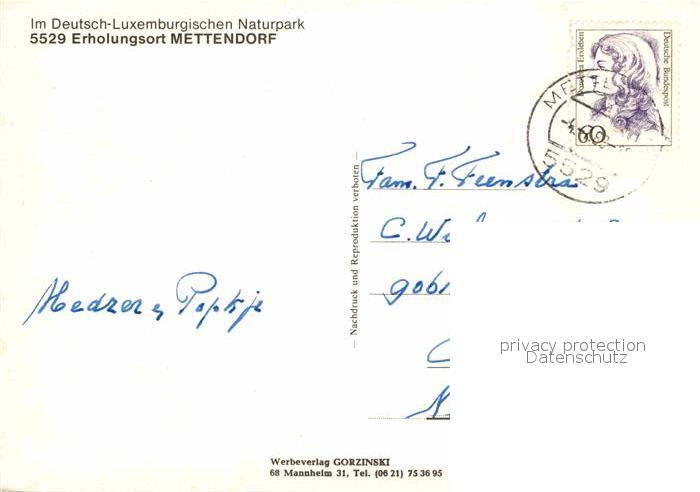 Im Deutsch-Luxemburgischen Naturpark
5529 Erholungsort METTENDORF
Deutsche Bundespost
60
5529
— Nachdruck und Reproduktion verboten —
Fam. F. Feenstra
C. W
906
privacy protection
Datenschutz
Werbeverlag GORZINSKI
68 Mannheim 31, Tel. (06 21) 75 36 95